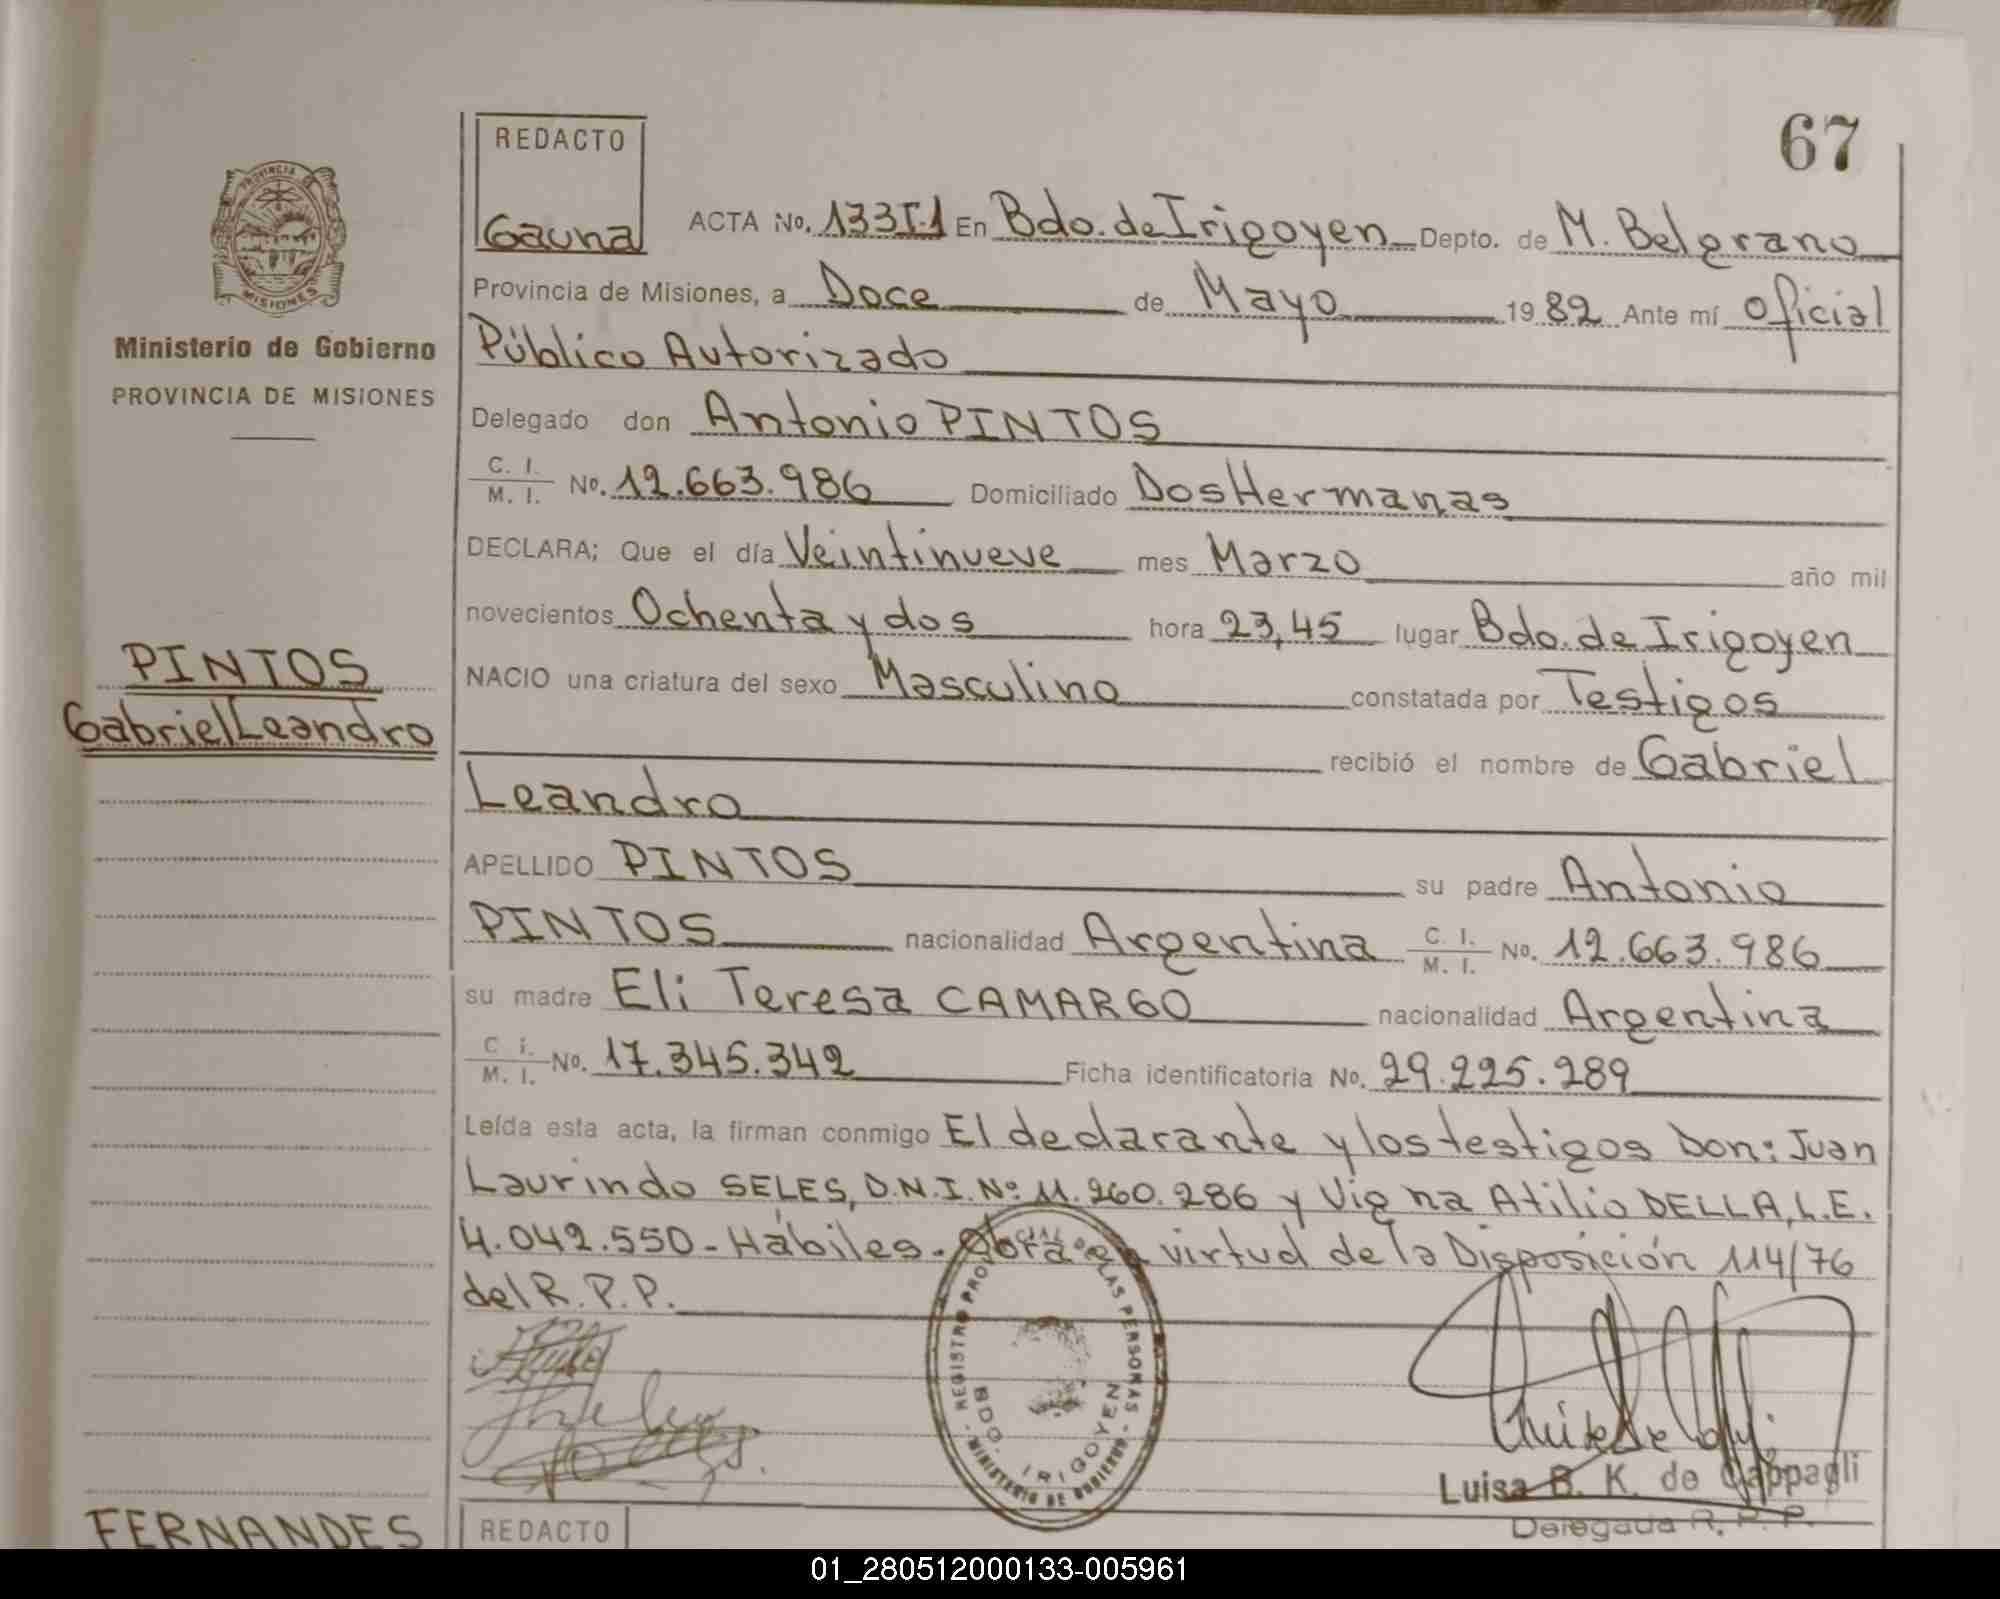 67
REDACTO
Gauna
ACTA No. 133I.1 En Bdo. de Irigoyen Depto. de M. Belgrano
Provincia de Misiones, a Doce de Mayo 1982 Ante mí Oficial
Público Autorizado
Delegado don Antonio PINTOS
C. I. / M. I. No. 12.663.986 Domiciliado Dos Hermanas
DECLARA; Que el día Veintinueve mes Marzo año mil
novecientos Ochenta y dos hora 23,45 lugar Bdo. de Irigoyen
NACIO una criatura del sexo Masculino constatada por Testigos
recibió el nombre de Gabriel
Leandro
APELLIDO PINTOS su padre Antonio
PINTOS nacionalidad Argentina C. I. / M. I. No. 12.663.986
su madre Eli Teresa CAMARGO nacionalidad Argentina
C. I. / M. I. No. 17.345.342 Ficha identificatoria No. 29.225.289
Leída esta acta, la firman conmigo El declarante y los testigos Don: Juan
Laurindo SELES, D.N.I. Nº 11.260.286 y Vigna Atilio DELLA, L.E.
4.042.550 - Hábiles - Obra en virtud de la Disposición 114/76
del R.P.P.
PROVINCIA DE
MISIONES
Ministerio de Gobierno
PROVINCIA DE MISIONES
PINTOS
Gabriel Leandro
REGISTRO PROVINCIAL DE LAS PERSONAS
BDO. IRIGOYEN
MINISTERIO DE GOBIERNO
Luisa B. K. de Cappagli
Delegada R. P. P.
FERNANDES
REDACTO
01_280512000133-005961